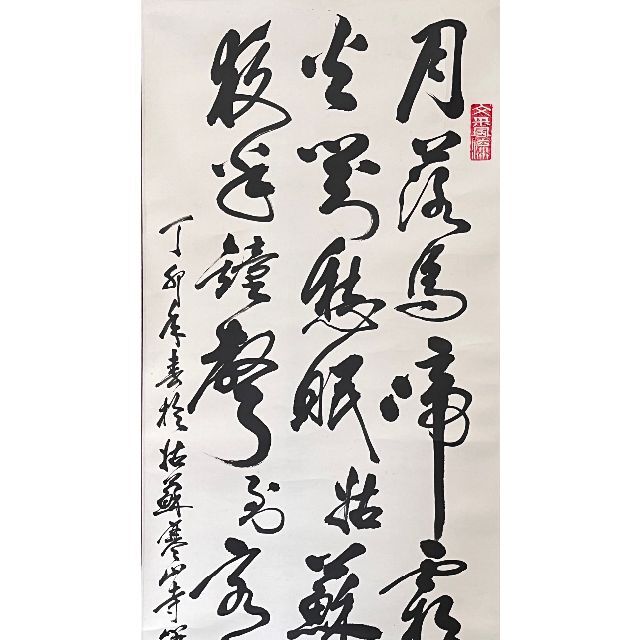 月落烏啼霜
火對愁眠姑蘇
夜半鐘聲到客
丁卯年春於姑蘇寒山寺